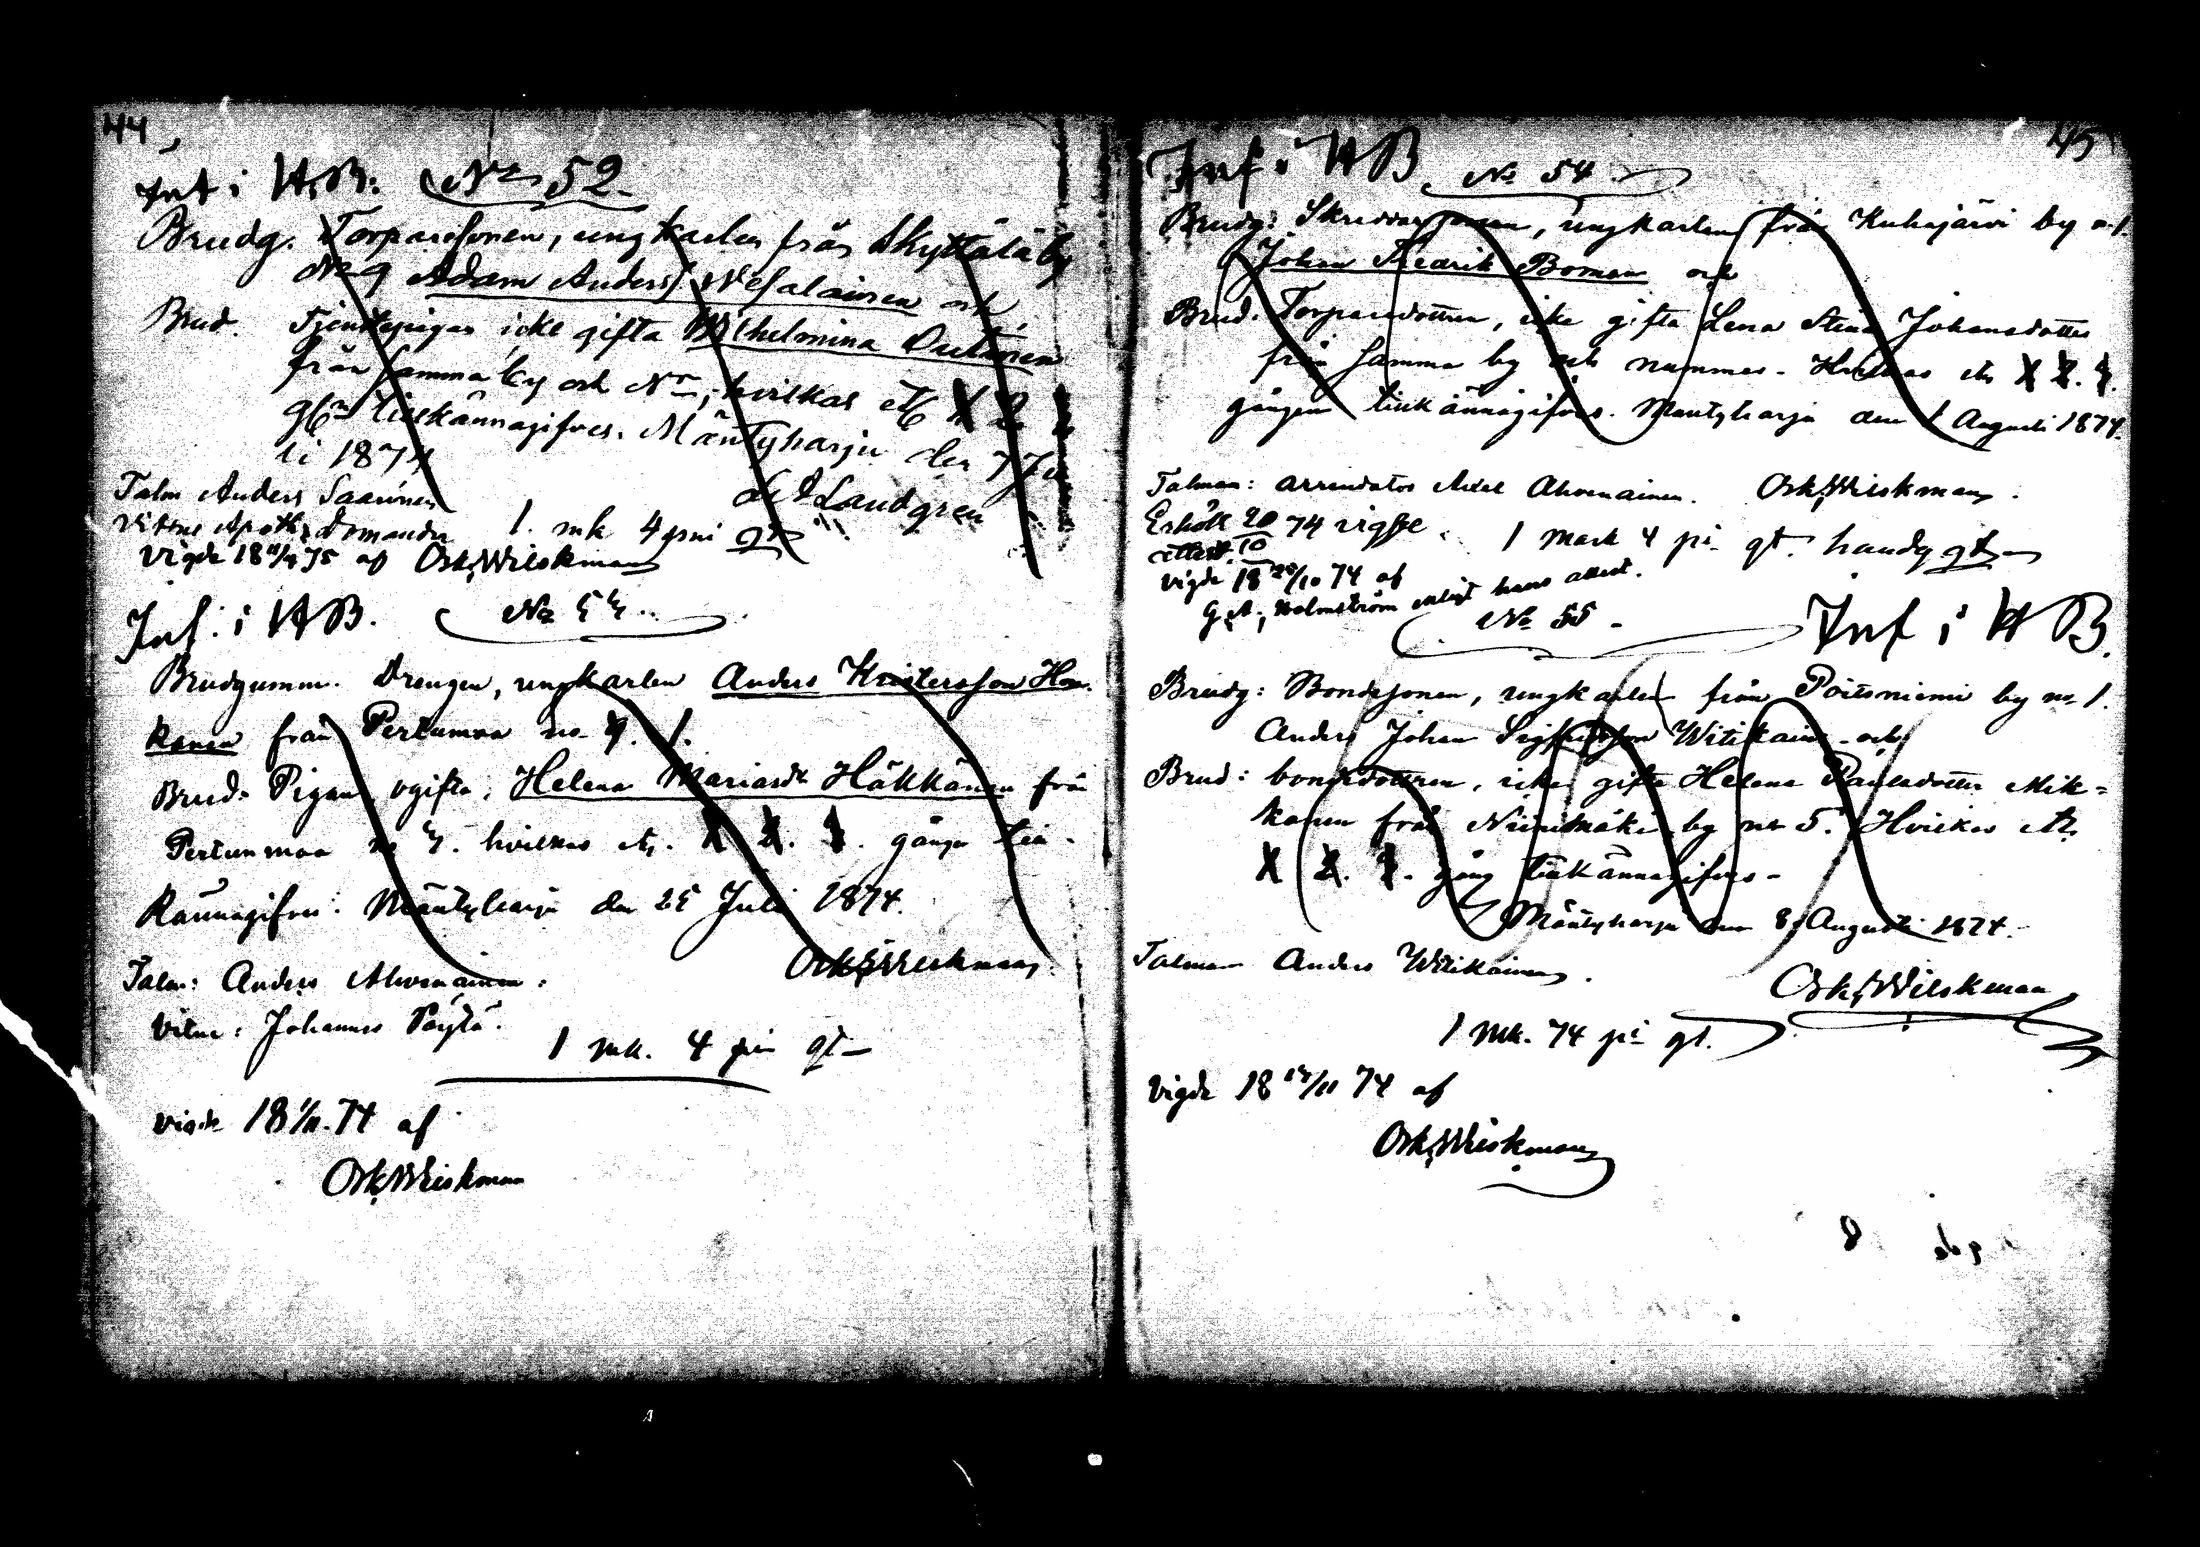 44
Inf i H.B. No 52
Brudg. Torparesonen, ungkarlen från Skyttälä by
No 9 Adam Anders. Wesalainen och
Brud. Tjenstepigan icke gifta Wilhelmina Outinen
från samma by och No, hvilkas
tillkännagifves. Mäntyharju den 7 Ju
li 1874
Lundgren
Talm Anders Saarinen
1. mk 4 pni qt
Vigde 18 75 af Osk. Wilskman
Inf. i HB. No 53.
Brudgumm. Drengen, ungkarlen Anders Kristersson Hon-
kanen från Pertunmaa no
Brud: Pigan, ogifta, Helena Mariasdr Häkkänen från
Pertunmaa no hvilkas gånga till-
kännagifves. Mäntyharju den 25 Juli 1874.
Osk. Wilskman
Talm: Anders Ahvenainen.
Vitne: Johannes Pöytä.
1 mk. 4 pni qt
Vigde 18 1/11 74 af
Osk. Wilskman
45
Inf i HB No 54
Brudg: Skreddaresonen, ungkarlen från Kuhajärvi by no 1.
Johan Fredrik Boman och
Brud. Torparedottren, icke gifta Lena Stina Johansdotter
från samma by och nummer. Hvilkas
gången tillkännagifves. Mäntyharju den 1 Augusti 1874.
Talman: arrendator Axel Ahvenainen. Osk. Wilskman.
Erhöllo 20/10 74 vigsel
attest.
1 mark 4 pi qt.
Vigde 18 25/10 74 af
G. A. Holmström enligt hans attest.
No 55 Inf i HB.
Brudg: Bondesonen, ungkarlen från Poitsniemi by no 1.
Anders Johan Sigfridsson Witikain och
Brud: bondedottren, icke gifta Helena Paulsdotter Mik=
kanen från Niinimäki by no 5. Hvilkas
gång tillkännagifves.
Mäntyharju den 8 Augusti 1874.
Talman Anders Witikainen.
Osk. Wilskman
1 mk. 74 pi qt.
Vigde 18 74 af
Osk. Wilskman